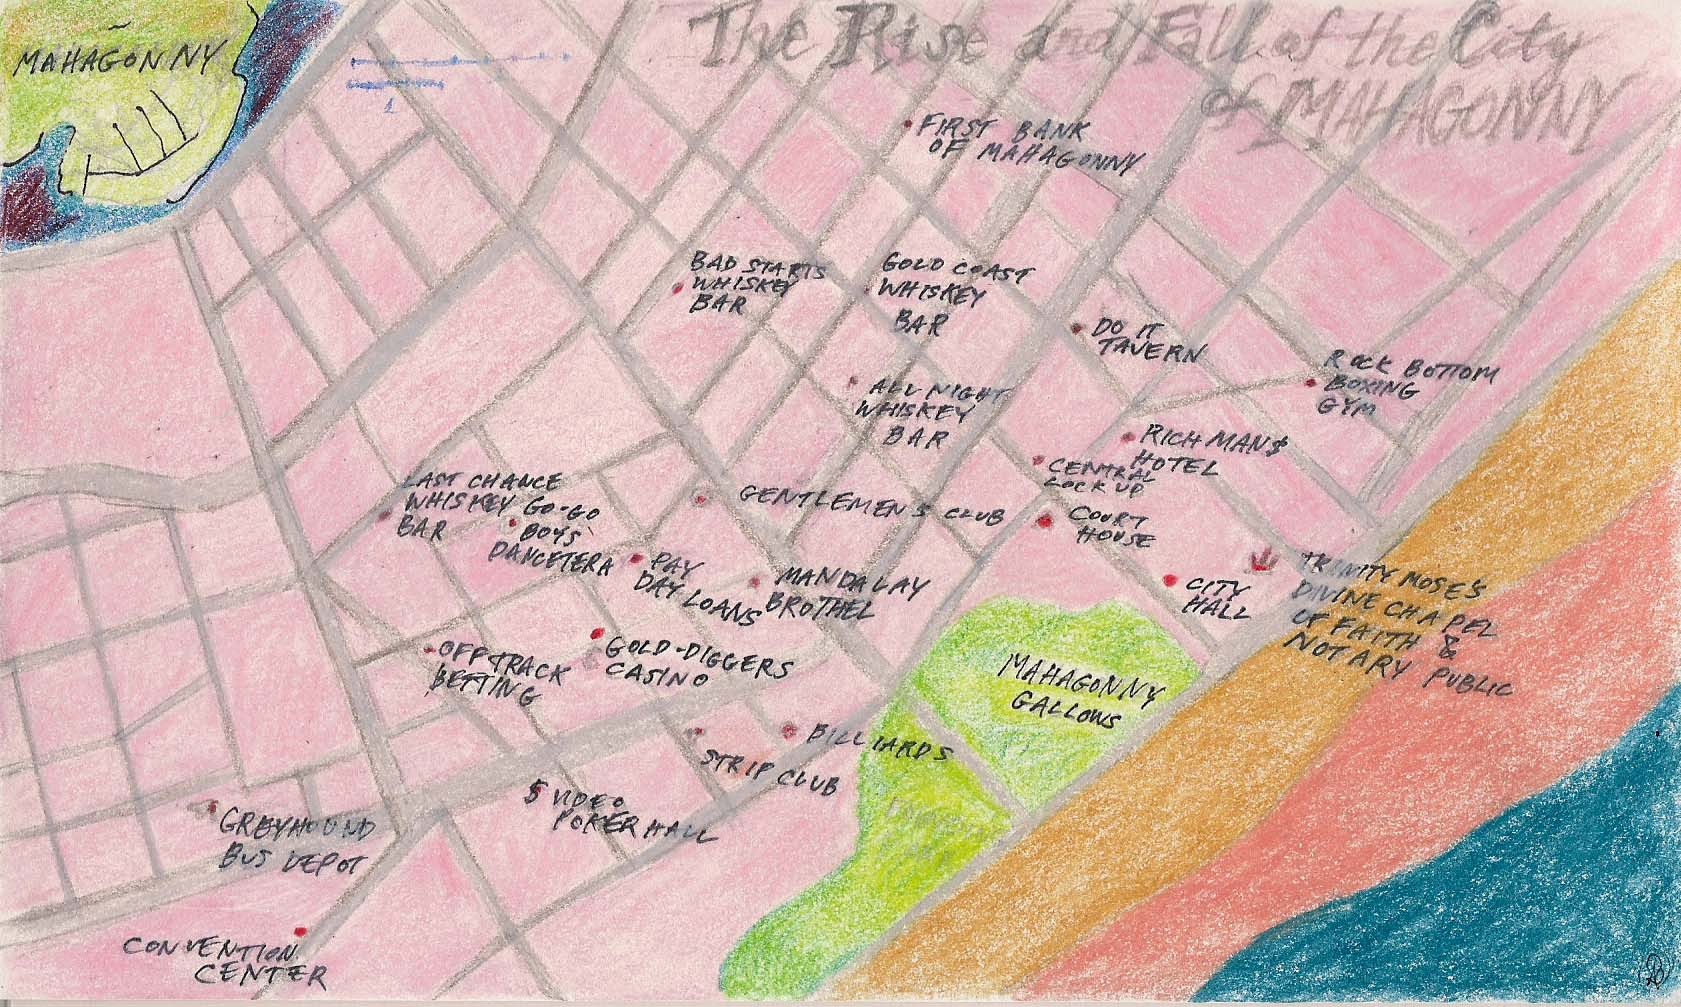 The Rise and Fall of the City
of MAHAGONNY
MAHAGONNY
1
FIRST BANK
OF MAHAGONNY
BAD STARTS
WHISKEY
BAR
GOLD COAST
WHISKEY
BAR
DO IT
TAVERN
ROCK BOTTOM
BOXING
GYM
ALL NIGHT
WHISKEY
BAR
RICH MAN$
HOTEL
CENTRAL
LOCK UP
LAST CHANCE
WHISKEY
BAR
GO-GO
BOYS
DANCETERA
GENTLEMENS CLUB
COURT
HOUSE
PAY
DAY LOANS
MANDALAY
BROTHEL
CITY
HALL
TRINITY MOSE'S
DIVINE CHAPEL
OF FAITH &
NOTARY PUBLIC
OFF TRACK
BETTING
GOLD-DIGGERS
CASINO
MAHAGONNY
GALLOWS
BILLIARDS
STRIP CLUB
$ VIDEO
POKER HALL
GREYHOUND
BUS DEPOT
CONVENTION
CENTER